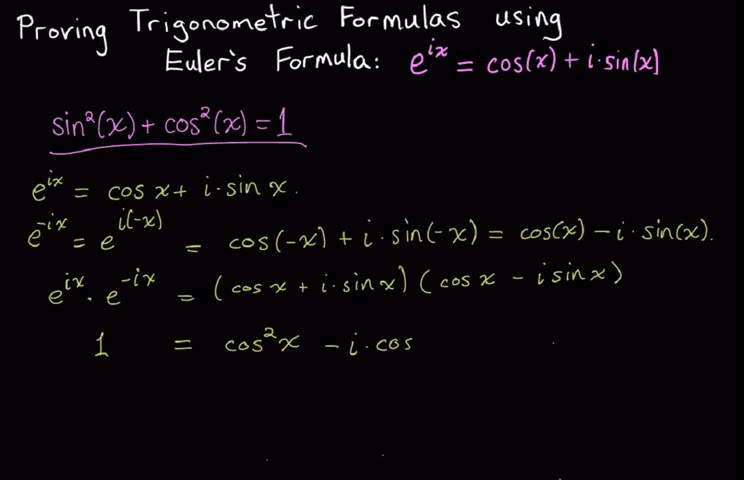 Proving Trigonometric Formulas using
Euler's Formula: e^{ix} = cos(x) + i·sin(x)
sin²(x) + cos²(x) = 1
e^{ix} = cos x + i·sin x.
e^{-ix} = e^{i(-x)} = cos(-x) + i·sin(-x) = cos(x) - i·sin(x).
e^{ix} · e^{-ix} = (cos x + i·sin x)(cos x - i sin x)
1 = cos²x - i·cos